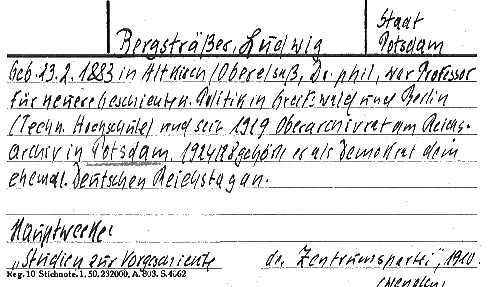 Stadt
Bergsträßer, Ludwig Potsdam
Geb. 23.2.1883 in Altkirch/Oberelsaß, Dr. phil, war Professor
für neuere Geschichte u. Politik in Greifswald und Berlin
(Techn. Hochschule) und seit 1919 Oberarchivrat am Reichs-
archiv in Potsdam. 1924/28 gehörte er als Demokrat dem
ehemal. Deutschen Reichstag an.
Hauptwerke:
„Studien zur Vorgeschichte der Zentrumspartei", 1910.
Reg. 10 Stichnote. 1, 50. 232000, A. 803. S. 4662